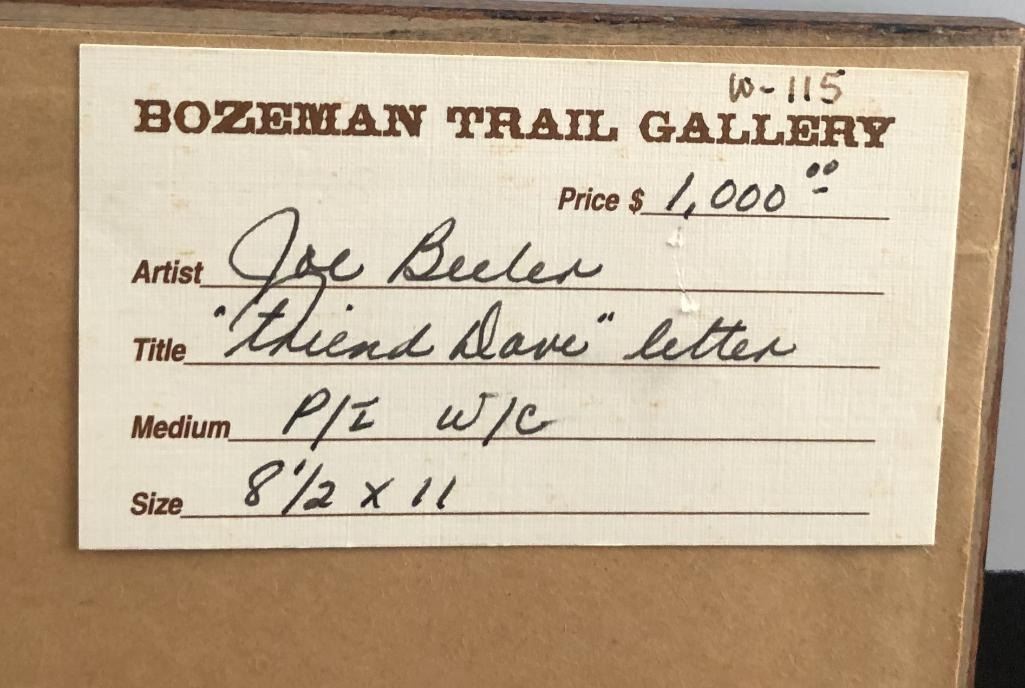 W-115
BOZEMAN TRAIL GALLERY
Price $ 1,000.00
Artist Joe Beeler
Title "Friend Dave" letter
Medium P/I W/C
Size 8 1/2 x 11